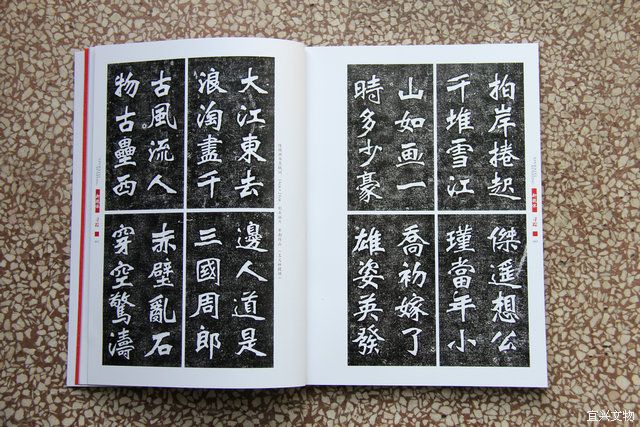 大江東去
浪淘盡千
古風流人
物古壘西
邊人道是
三國周郎
赤壁亂石
穿空驚濤
拍岸捲起
千堆雪江
山如画一
時多少豪
傑遥想公
瑾當年小
喬初嫁了
雄姿英發
宜兴文物